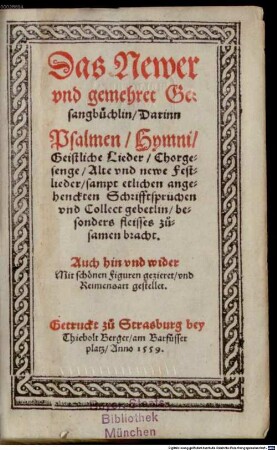 Das Newer
vnd gemehret Ge-
sangbüchlin / Darinn
Psalmen / Hymni /
Geistliche Lieder / Chorge-
senge / Alte vnd newe Fest-
lieder / sampt etlichen ange-
henckten Schrifftsprüchen
vnd Collect gebetlin / be-
sonders fleisses zů-
samen bracht.
Auch hin vnd wider
Mit schönen Figuren gezieret / vnd
Reimensart gestellet.
Getruckt zů Strasburg bey
Thiebolt Berger / am Barfůsser
platz / Anno 1559.
Bayer. Staats-
Bibliothek
München